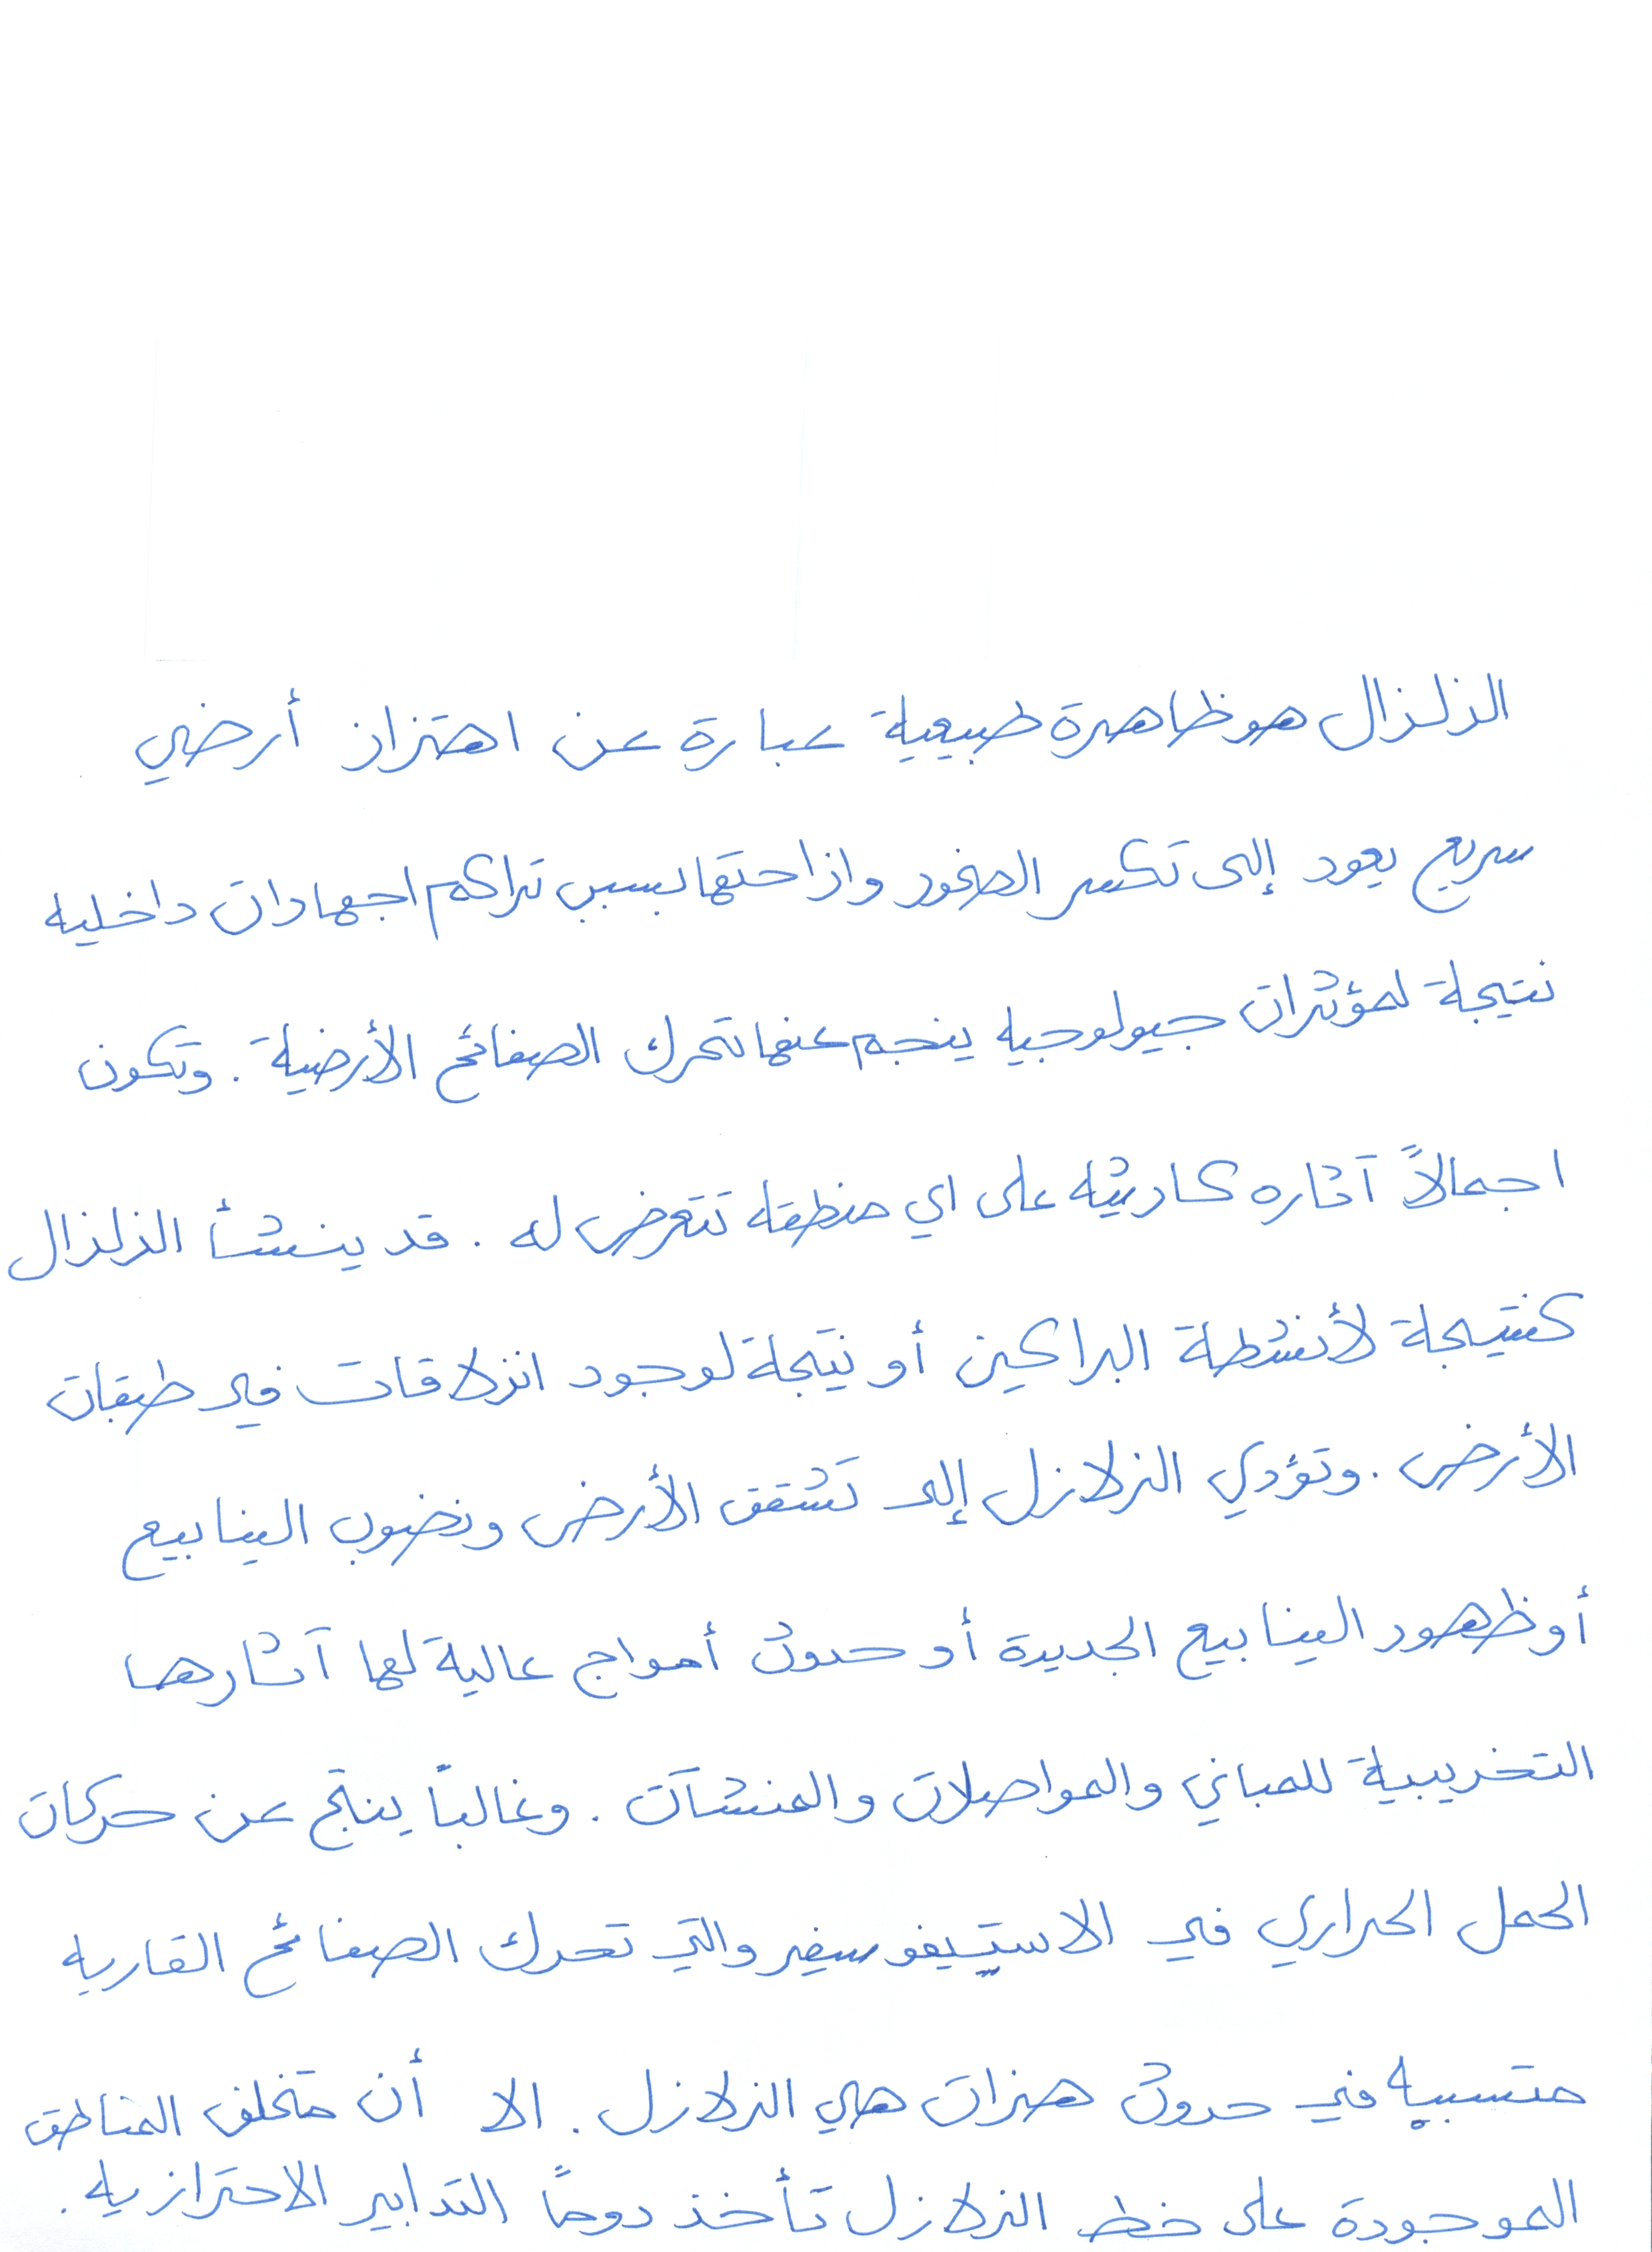 الزلزال هو ظاهرة طبيعية عبارة عن اهتزاز أرضي
سريع يعود إلى تكسر الصخور وازاحتها بسبب تراكم اجهادات داخليه
نتيجة لمؤثرات جيولوجيه ينجم عنها تحرك الصفائح الأرضية. وتكون
اجمالاً آثاره كارثيه على اي منطقه تتعرض له. قد ينشأ الزلزال
كنتيجة لأنشطة البراكين أو نتيجة لوجود انزلاقات في طبقات
الأرض. وتؤدي الزلازل إلى تشقق الأرض ونضوب الينابيع
أو ظهور الينابيع الجديدة أو حدوث أمواج عالية لها آثارها
التخريبية للمباني والمواصلات والمنشآت. وغالباً ينتج عن حركات
الحمل الحراري في الاستيفوسفير والتي تحرك الصفائح القاريه
متسببه في حدوث هزات هي الزلازل. الا أن مختلف المناطق
الموجودة على خط الزلازل تأخذ دوماً التدابير الاحترازيه.